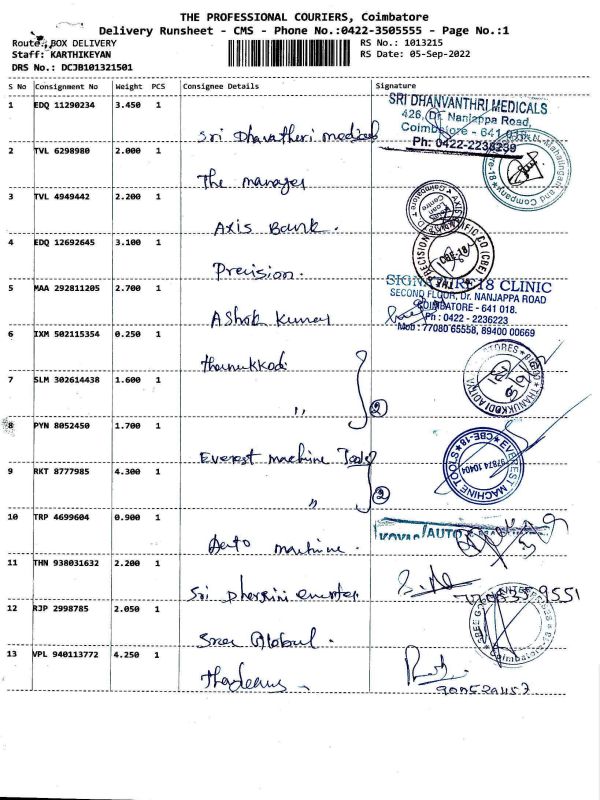 THE PROFESSIONAL COURIERS, Coimbatore
Delivery Runsheet - CMS - Phone No.:0422-3505555 - Page No.:1
Route: BOX DELIVERY
Staff: KARTHIKEYAN
DRS No.: DCJB101321501
RS No.: 1013215
RS Date: 05-Sep-2022
S No Consignment No Weight PCS Consignee Details Signature
1 EDQ 11290234 3.450 1
Sri Dhavatheri medicals
SRI DHANVANTHRI MEDICALS
426, Dr. Nanjappa Road,
Coimbatore - 641 018.
Ph: 0422-2238239
2 TVL 6298980 2.000 1
The manager
3 TVL 4949442 2.200 1
Axis Bank.
4 EDQ 12692645 3.100 1
Precision.
THE PRECISION CO (CBE)
CBE-18
5 MAA 292811205 2.700 1
Ashok Kumar
SIGNATURE18 CLINIC
SECOND FLOOR, Dr. NANJAPPA ROAD
COIMBATORE - 641 018.
Ph : 0422 - 2236223
Mob : 77080 65558, 89400 00669
6 IXM 502115354 0.250 1
Thanukkodi
7 SLM 302614438 1.600 1
" 2
THANUKKODI ADITYA STORES
8 PYN 8052450 1.700 1
Everest machine Tools
EVEREST MACHINE TOOLS CBE-18
97874 10404
9 RKT 8777985 4.300 1
" 2
10 TRP 4699604 0.900 1
Auto machine.
AUTO
11 THN 938031632 2.200 1
Sri Dharsini
12 RJP 2998785 2.050 1
Sree Global.
13 VPL 940113772 4.250 1